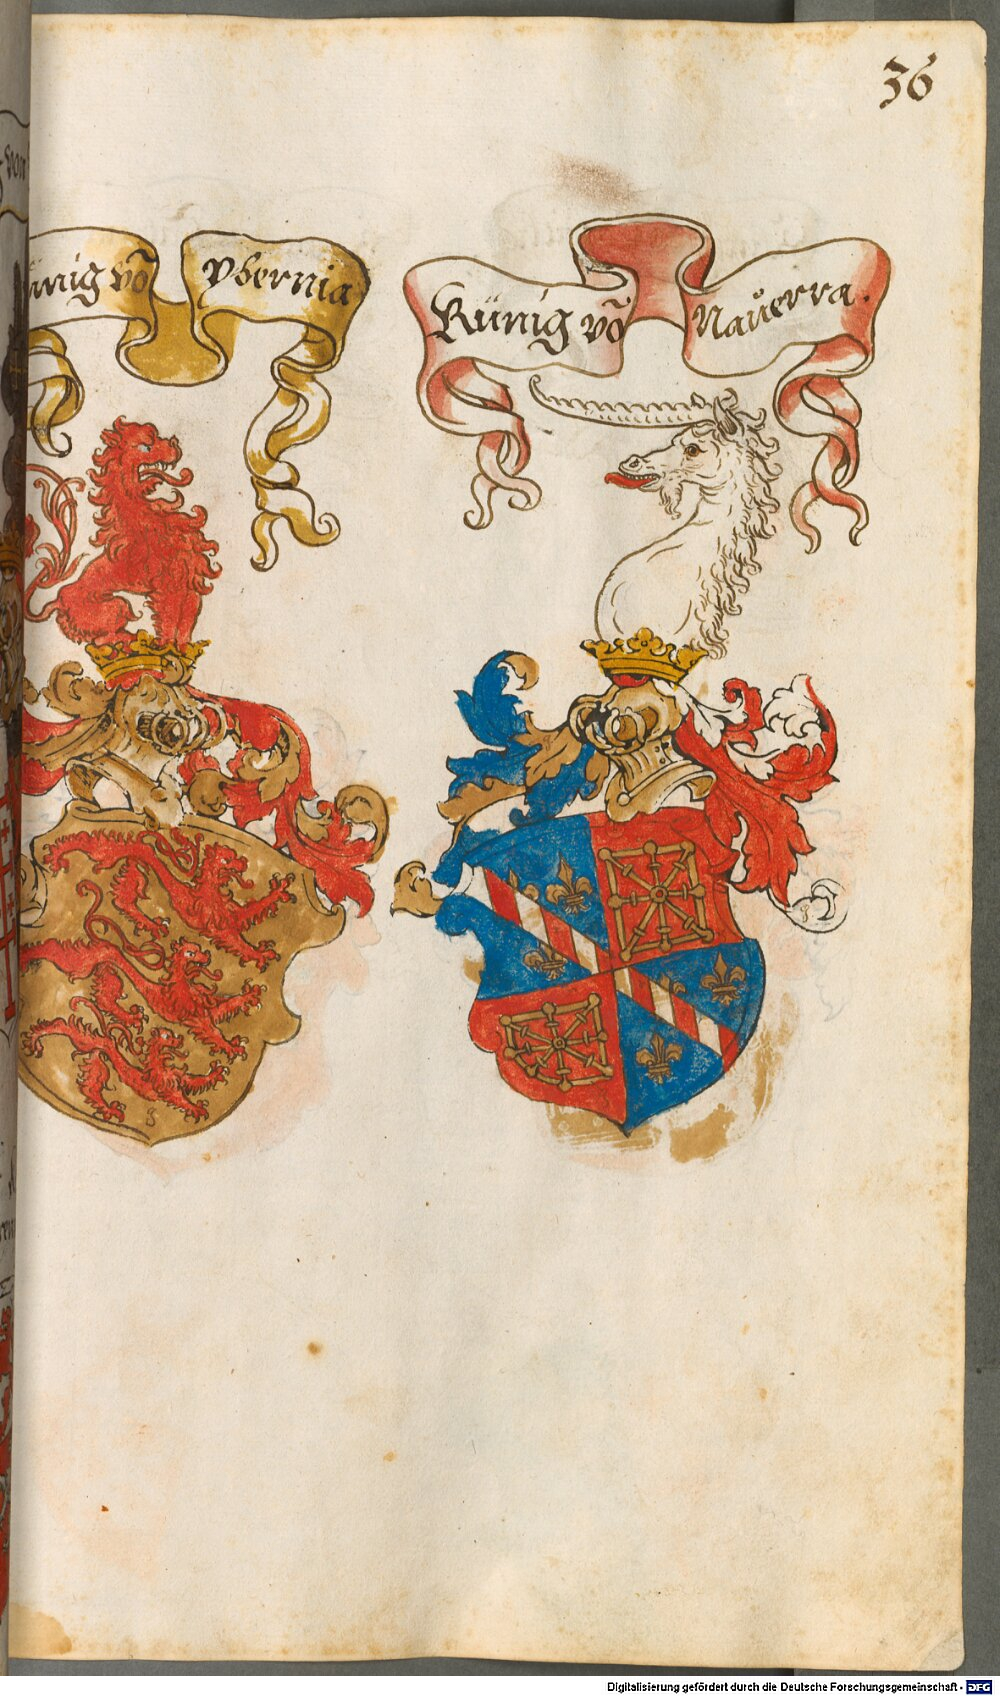 36
künig võ Ybernia
Künig võ Nauerra.
Digitalisierung gefördert durch die Deutsche Forschungsgemeinschaft - DFG